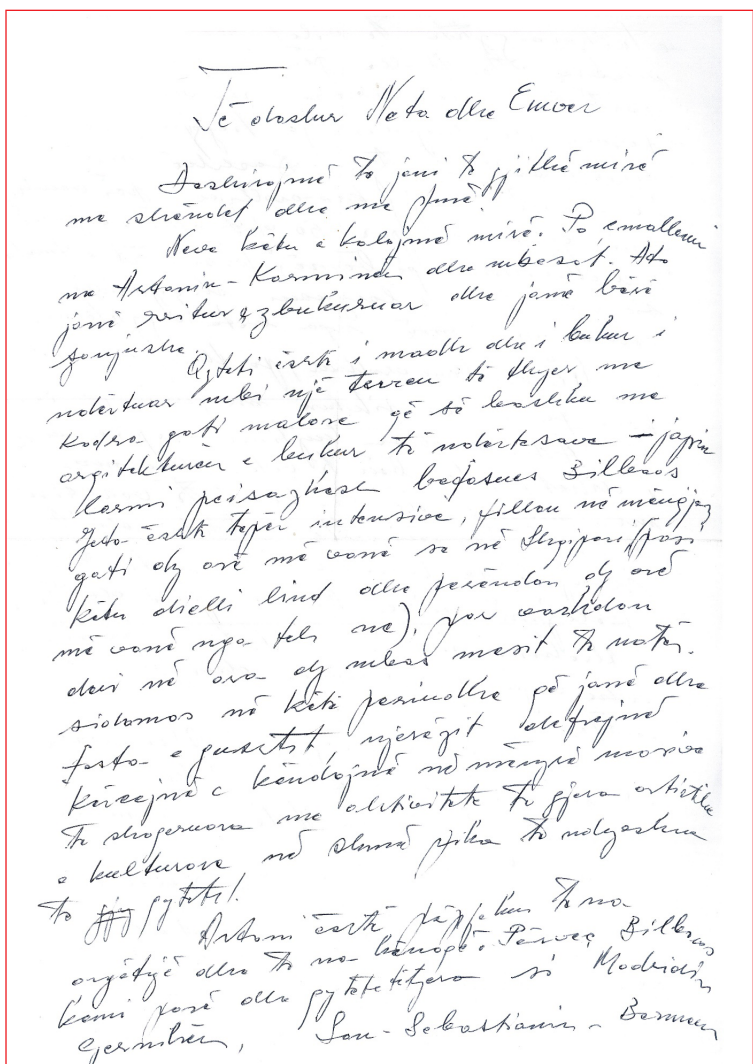 Të dashur Neta dhe Enver
Dëshirojmë të jeni të gjithë mirë
me shëndet dhe me punë.
Neve këtu e kalojmë mirë. Po çmallemi
me Artanin - Karminen dhe mbesat. Ato
janë rritur e zbukuruar dhe janë bërë
Qyteti është i madh dhe i bukur i
ndërtuar mbi një terren të thyer me
kodra gati malore që së bashku me
arqitekturen e bukur të ndërtesave - japin
peisazhe Bilbaos
Jeta është tepër intensive, fillon në mëngjez
gati dy orë më vonë se në Shqipëri (pasi
këtu dielli lind dhe perëndon dy orë
më vonë nga tek ne), por vazhdon
deri në ora dy mbas mesit të natës.
sidomos në këtë periudhë që janë dhe
festa e gushtit, njerëzit dëfrejnë
kërcejnë e këndojnë në mënyrë masive
të shoqëruara me aktivitete të gjera artistike
e kulturore në shumë pika të ndryshme
të qytetit.
Artani është përpjekur të na
argëtijë dhe të na kënaqë. Përveç Bilbaos
kemi parë dhe qytete të tjera si Madridin
Gernikën, San-Sebastianin - Bermeon